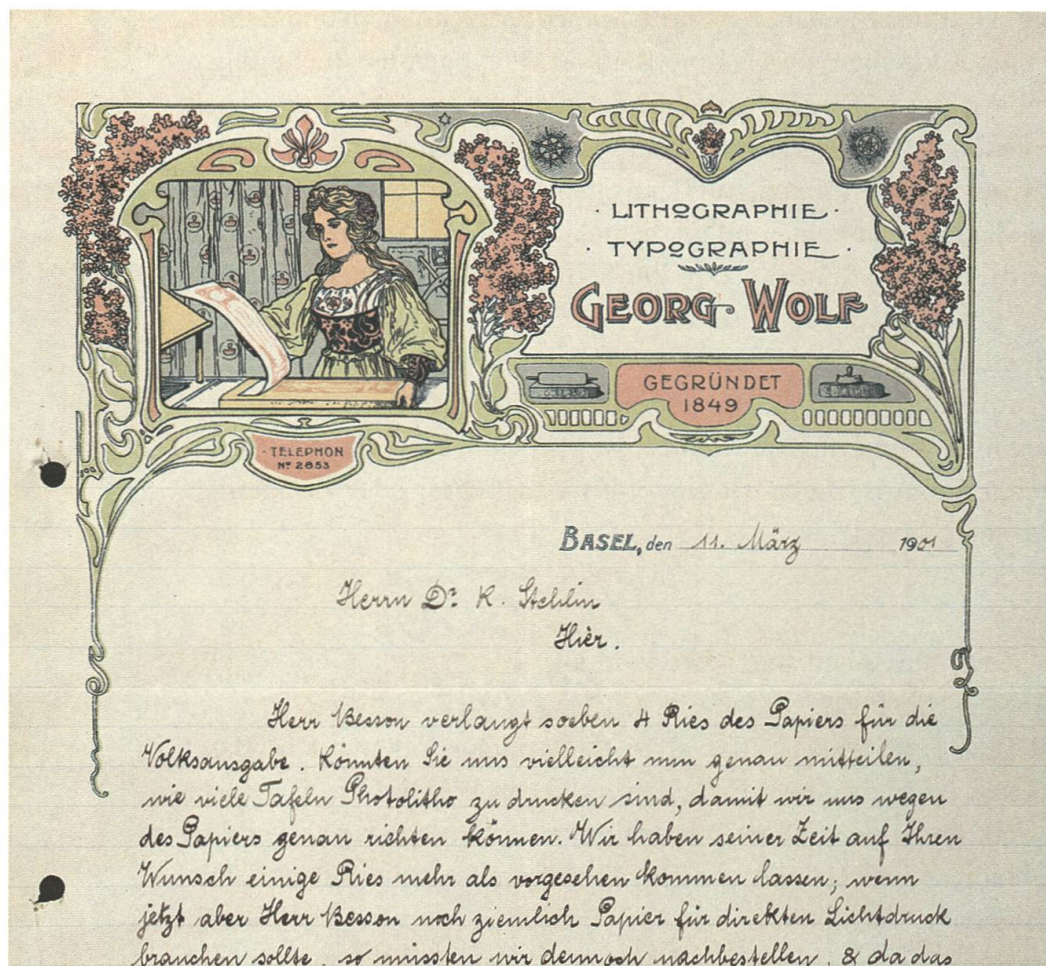 · LITHOGRAPHIE ·
· TYPOGRAPHIE ·
GEORG WOLF
GEGRÜNDET
1849
· TELEPHON
No 2853
BASEL, den 11. März 1901
Herrn Dr. K. Stehlin
Hier.
Herr Besson verlangt soeben 4 Ries des Papiers für die
Volksausgabe. Könnten Sie uns vielleicht nun genau mitteilen,
wie viele Tafeln Photolitho zu drucken sind, damit wir uns wegen
des Papiers genau richten können. Wir haben seiner Zeit auf Ihren
Wunsch einige Ries mehr als vorgesehen kommen lassen; wenn
jetzt aber Herr Besson noch ziemlich Papier für direkten Lichtdruck
brauchen sollte, so müssten wir dennoch nachbestellen, & da das